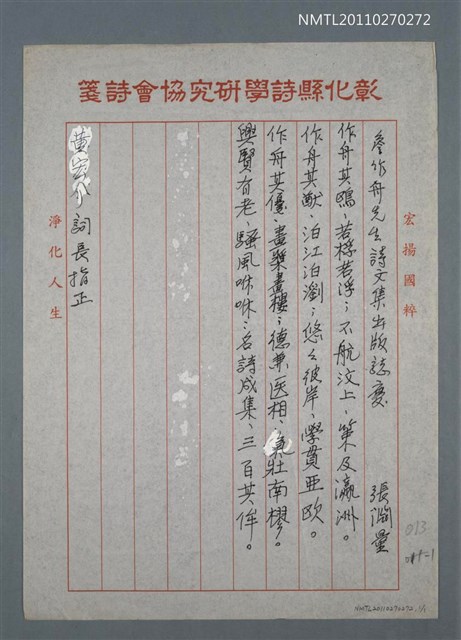 NMTL20110270272
彰化縣詩學研究協會詩箋
宏揚國粹
詹作舟先生詩文集出版誌慶
張淵量
作舟其鷗、若桴若浮；不航汶上、策及瀛洲。
作舟其猷、泊江泊瀏；悠々彼岸、學貫亞歐。
作舟其優、畫槳畫樓；德兼医相、氣壯南樛。
興賢有老、騷風咻咻；名詩成集、三百其侔。
黃宏介詞長指正
淨化人生
013
NMTL20110270272